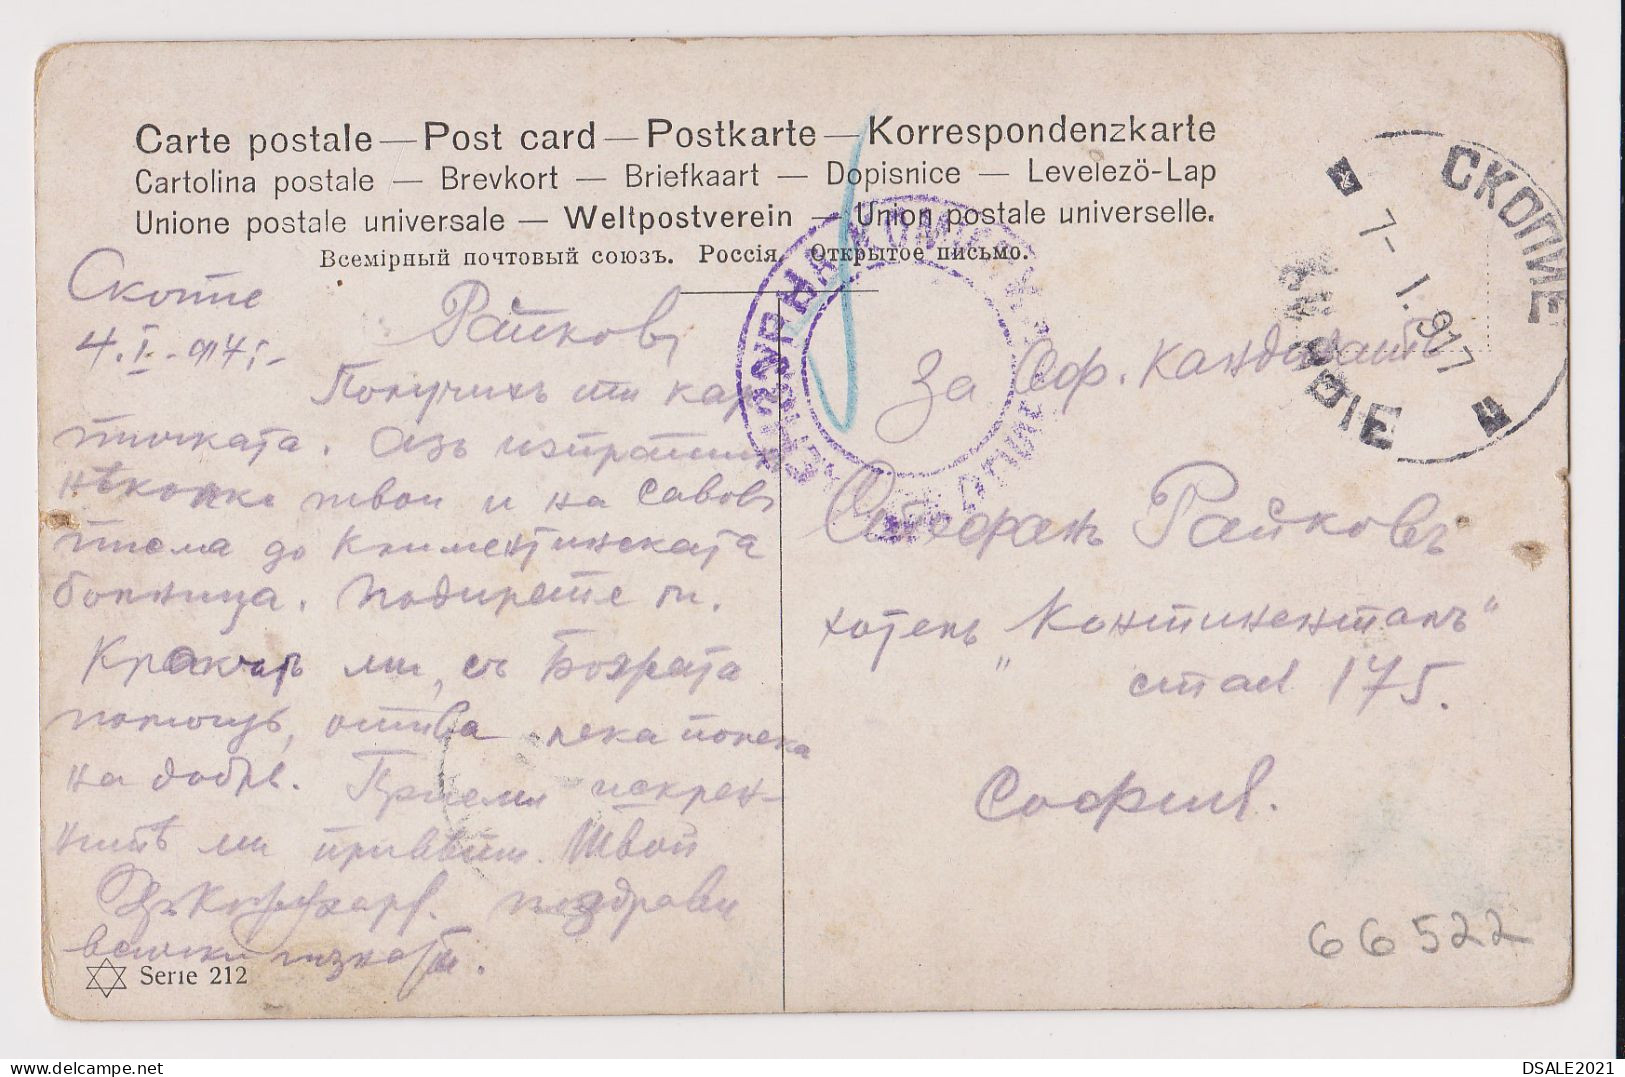 Carte postale — Post card — Postkarte — Korrespondenzkarte
Cartolina postale — Brevkort — Briefkaart — Dopisnice — Levelezö-Lap
Unione postale universale — Weltpostverein — Union postale universelle.
Всемірный почтовый союзъ. Россія. Открытое письмо.
Скопие
4.I.-917.-
Райковъ,
Получихъ ти кар-
тичката. Азъ изпратихъ
нѣколко твои и на Савовъ
писма до Климентинската
болница. Подирете ги.
Кракътъ ми, съ Божията
помощь, отива лека полека
на добрѣ. Приеми искрен-
нитѣ ми привѣти. Твой
поздрави
всички познати.
Serie 212
СКОПИЕ
7-1.917
За Оф. кандидатъ
Стефанъ Райковъ
хотель "Континенталъ"
" стая 175.
София.
66522
DSALE2021